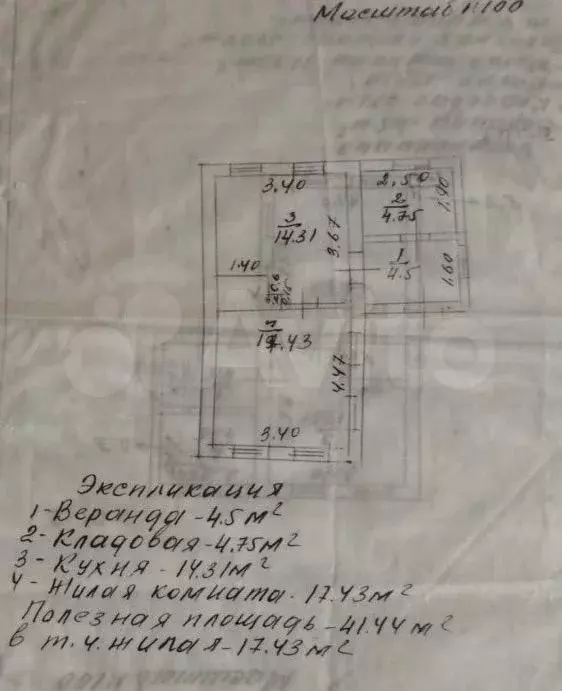 Масштаб 1:100
3.40
2,50
2
4.75
1.90
3
14.31
3.67
1
4.5
1.60
1.40
17.43
4.47
3.40
Экспликация
1-Веранда-4.5м²
2-Кладовая-4.75м²
3-Кухня-14.31м²
4-Жилая комната-17.43м²
Полезная площадь-41.44м²
в т.ч.жилая-17.43м²
Avito